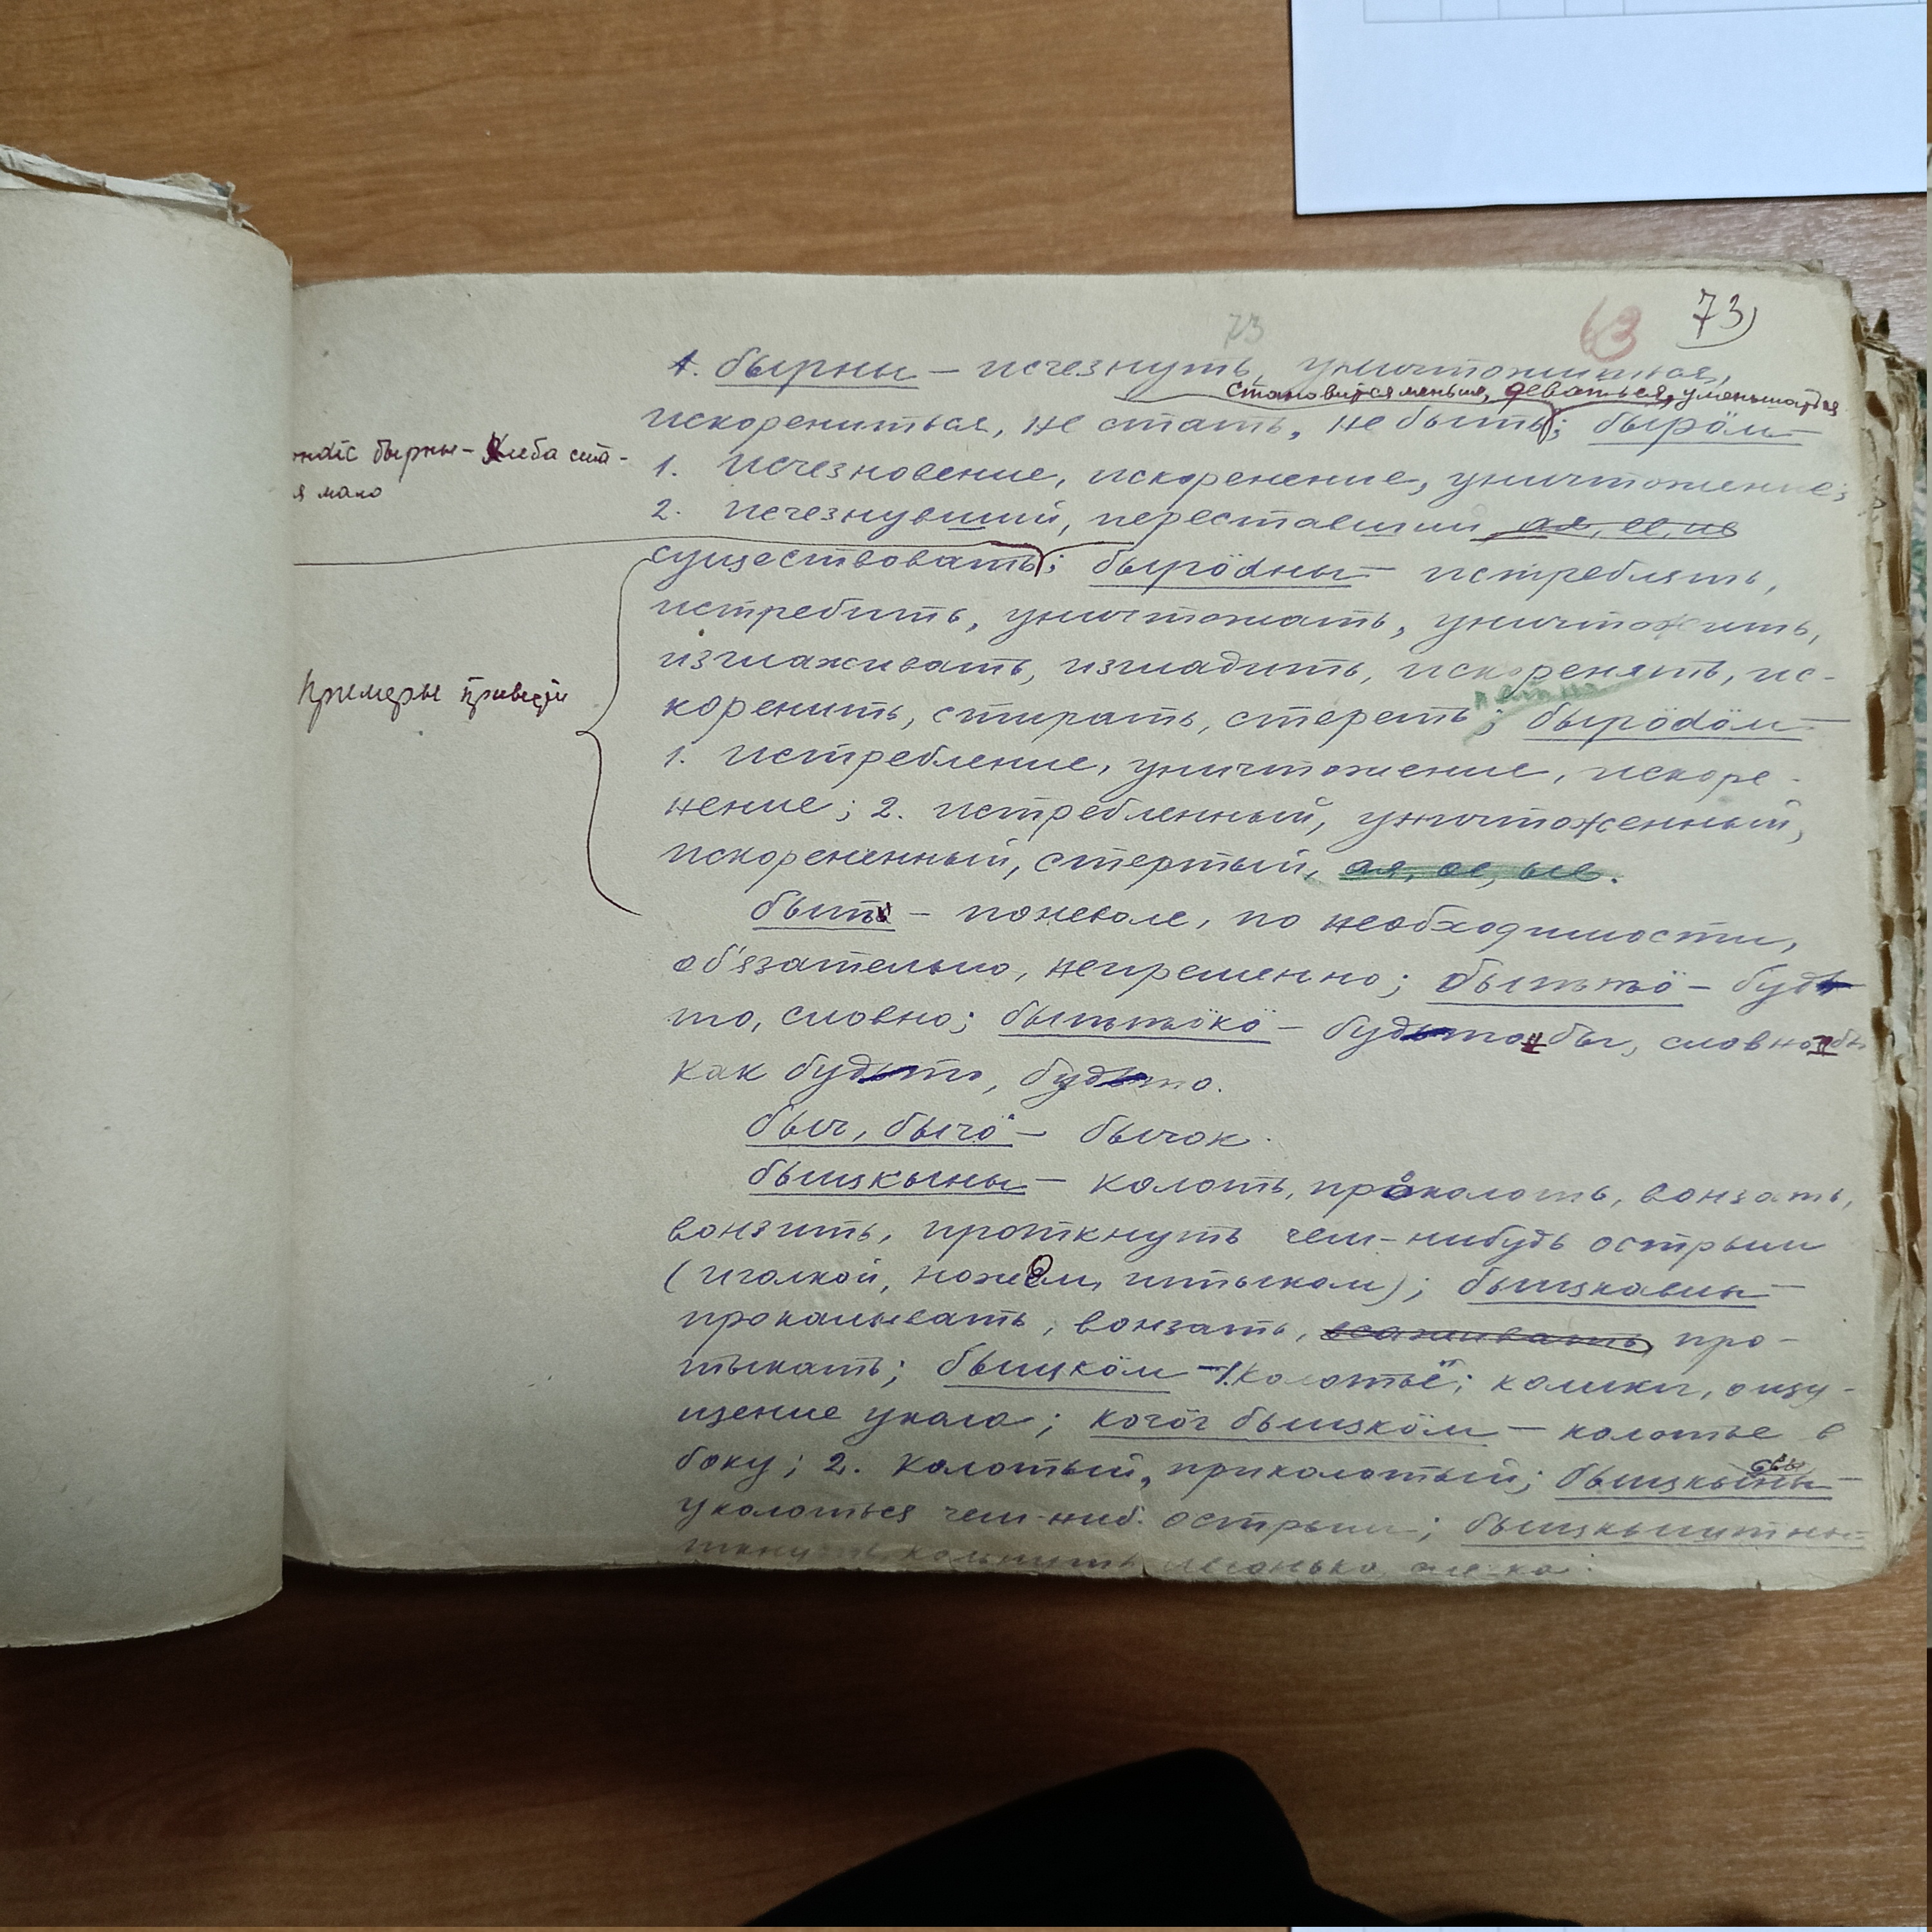 73
63
73)
1. бырны – исчезнуть, уничтожиться,
становится меньше, деваться, уменьшаться
искорениться, не стать, не быть; бырӧм –
бырны – хлеба ста-
я мало
1. исчезновение, искоренение, уничтожение;
2. исчезнувший, переставший ая, ее, ие
существовать; бырӧdны – истреблять,
истребить, уничтожать, уничтожить,
изглаживать, изгладить, искоренять, ис-
Примеры приведи
коренить, стирать, стереть; бырӧdӧм –
1. истребление, уничтожение, искоре-
нение; 2. истребленный, уничтоженный,
искорененный, стертый, ая, ое, ые.
быть – поневоле, по необходимости,
об'язательно, непременно; быттьӧ – будь
то, словно; быттьӧкӧ – будьто бы, словно бы
как будьто, будьто.
быч, бычӧ – бычок.
бышкыны – колоть, проколоть, вонзать,
вонзить, проткнуть чем-нибудь острым
(иголкой, ножом, штыком); бышкавны –
прокалывать, вонзать, всаживать, про-
тыкать; бышкӧм – 1. колотьё; колики, ощу-
щение укола; когӧг бышкӧм – колотье в
боку; 2. колотый, приколотый; бышкыны –
уколоться чем-ниб. острым; бышкыштны –
кольнуть легонько